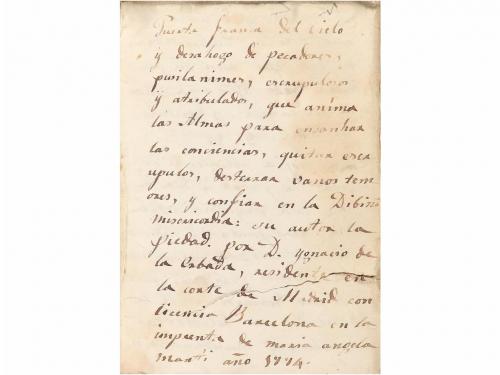 Puerta franca del cielo
y desahogo de pecadores,
pusilanimes, escrupulosos
y atribulados, que aníma
las Almas para ensanhar
las conciencias, quitar escr
upulos, desterrar vanos tem
ores, y confiar en la Dibina
misericordia: su autor la
piedad. por D. Ygnacio de
la Erbada, residente en
la corte de Madrid con
licencia Barcelona en la
imprenta de maria angela
marti año 1774.